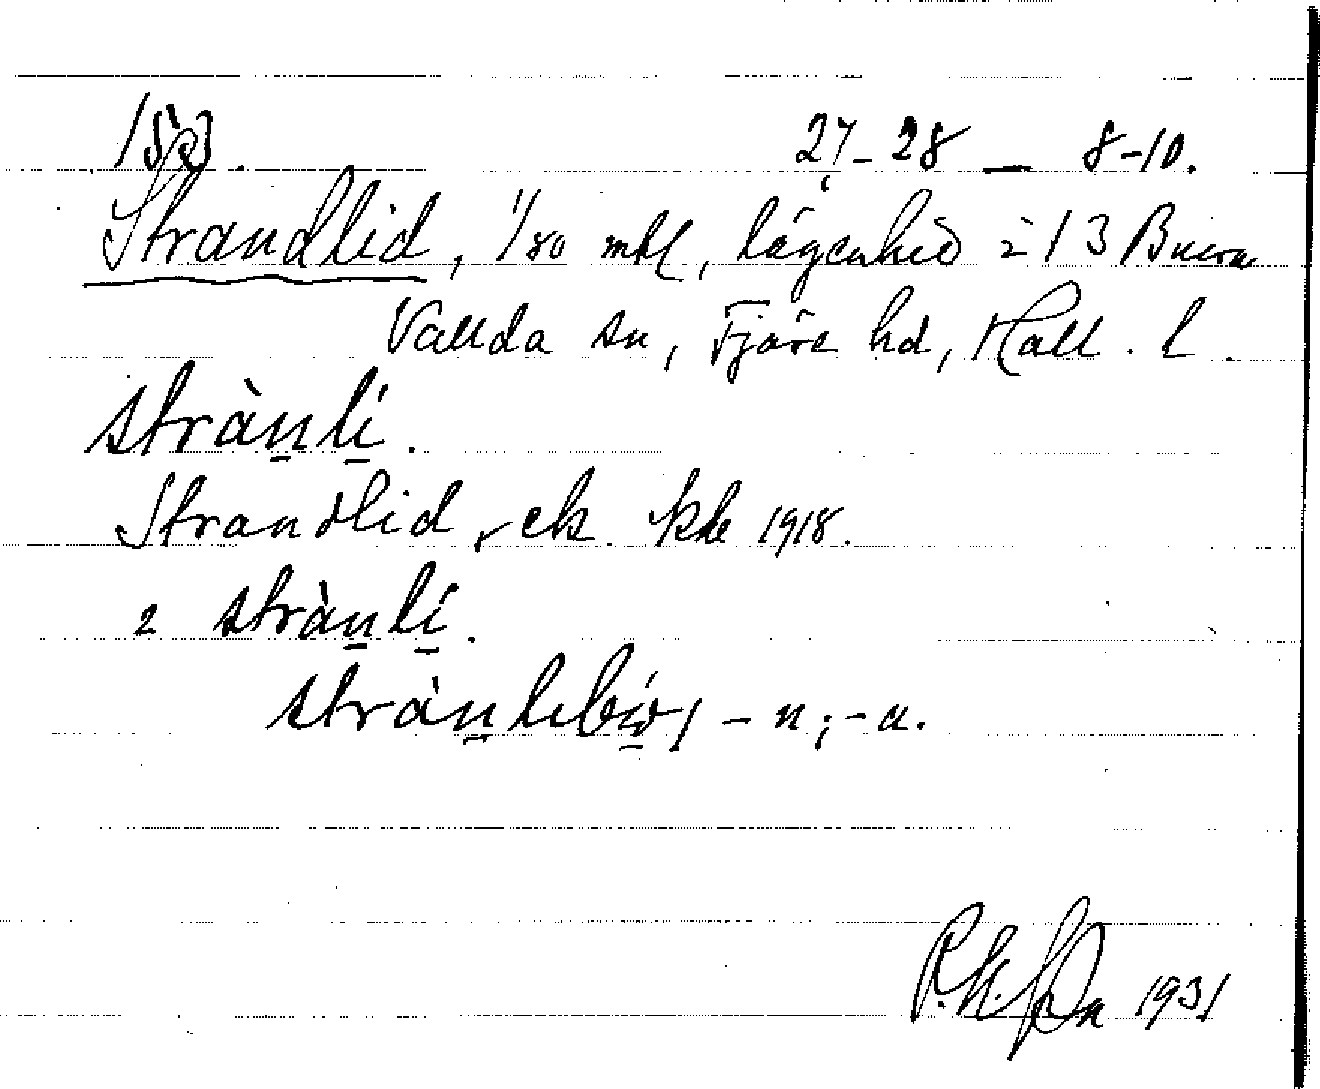 27-28 — 8-10.
Strandlid, 1/80 mtl, lägenhet å 13 Buera
Vallda sn, Fjäre hd, Hall. l.
strànlí.
Strandlid, ek. kbl 1918.
2 strànlí.
strànlebo, -n; -a.
1931